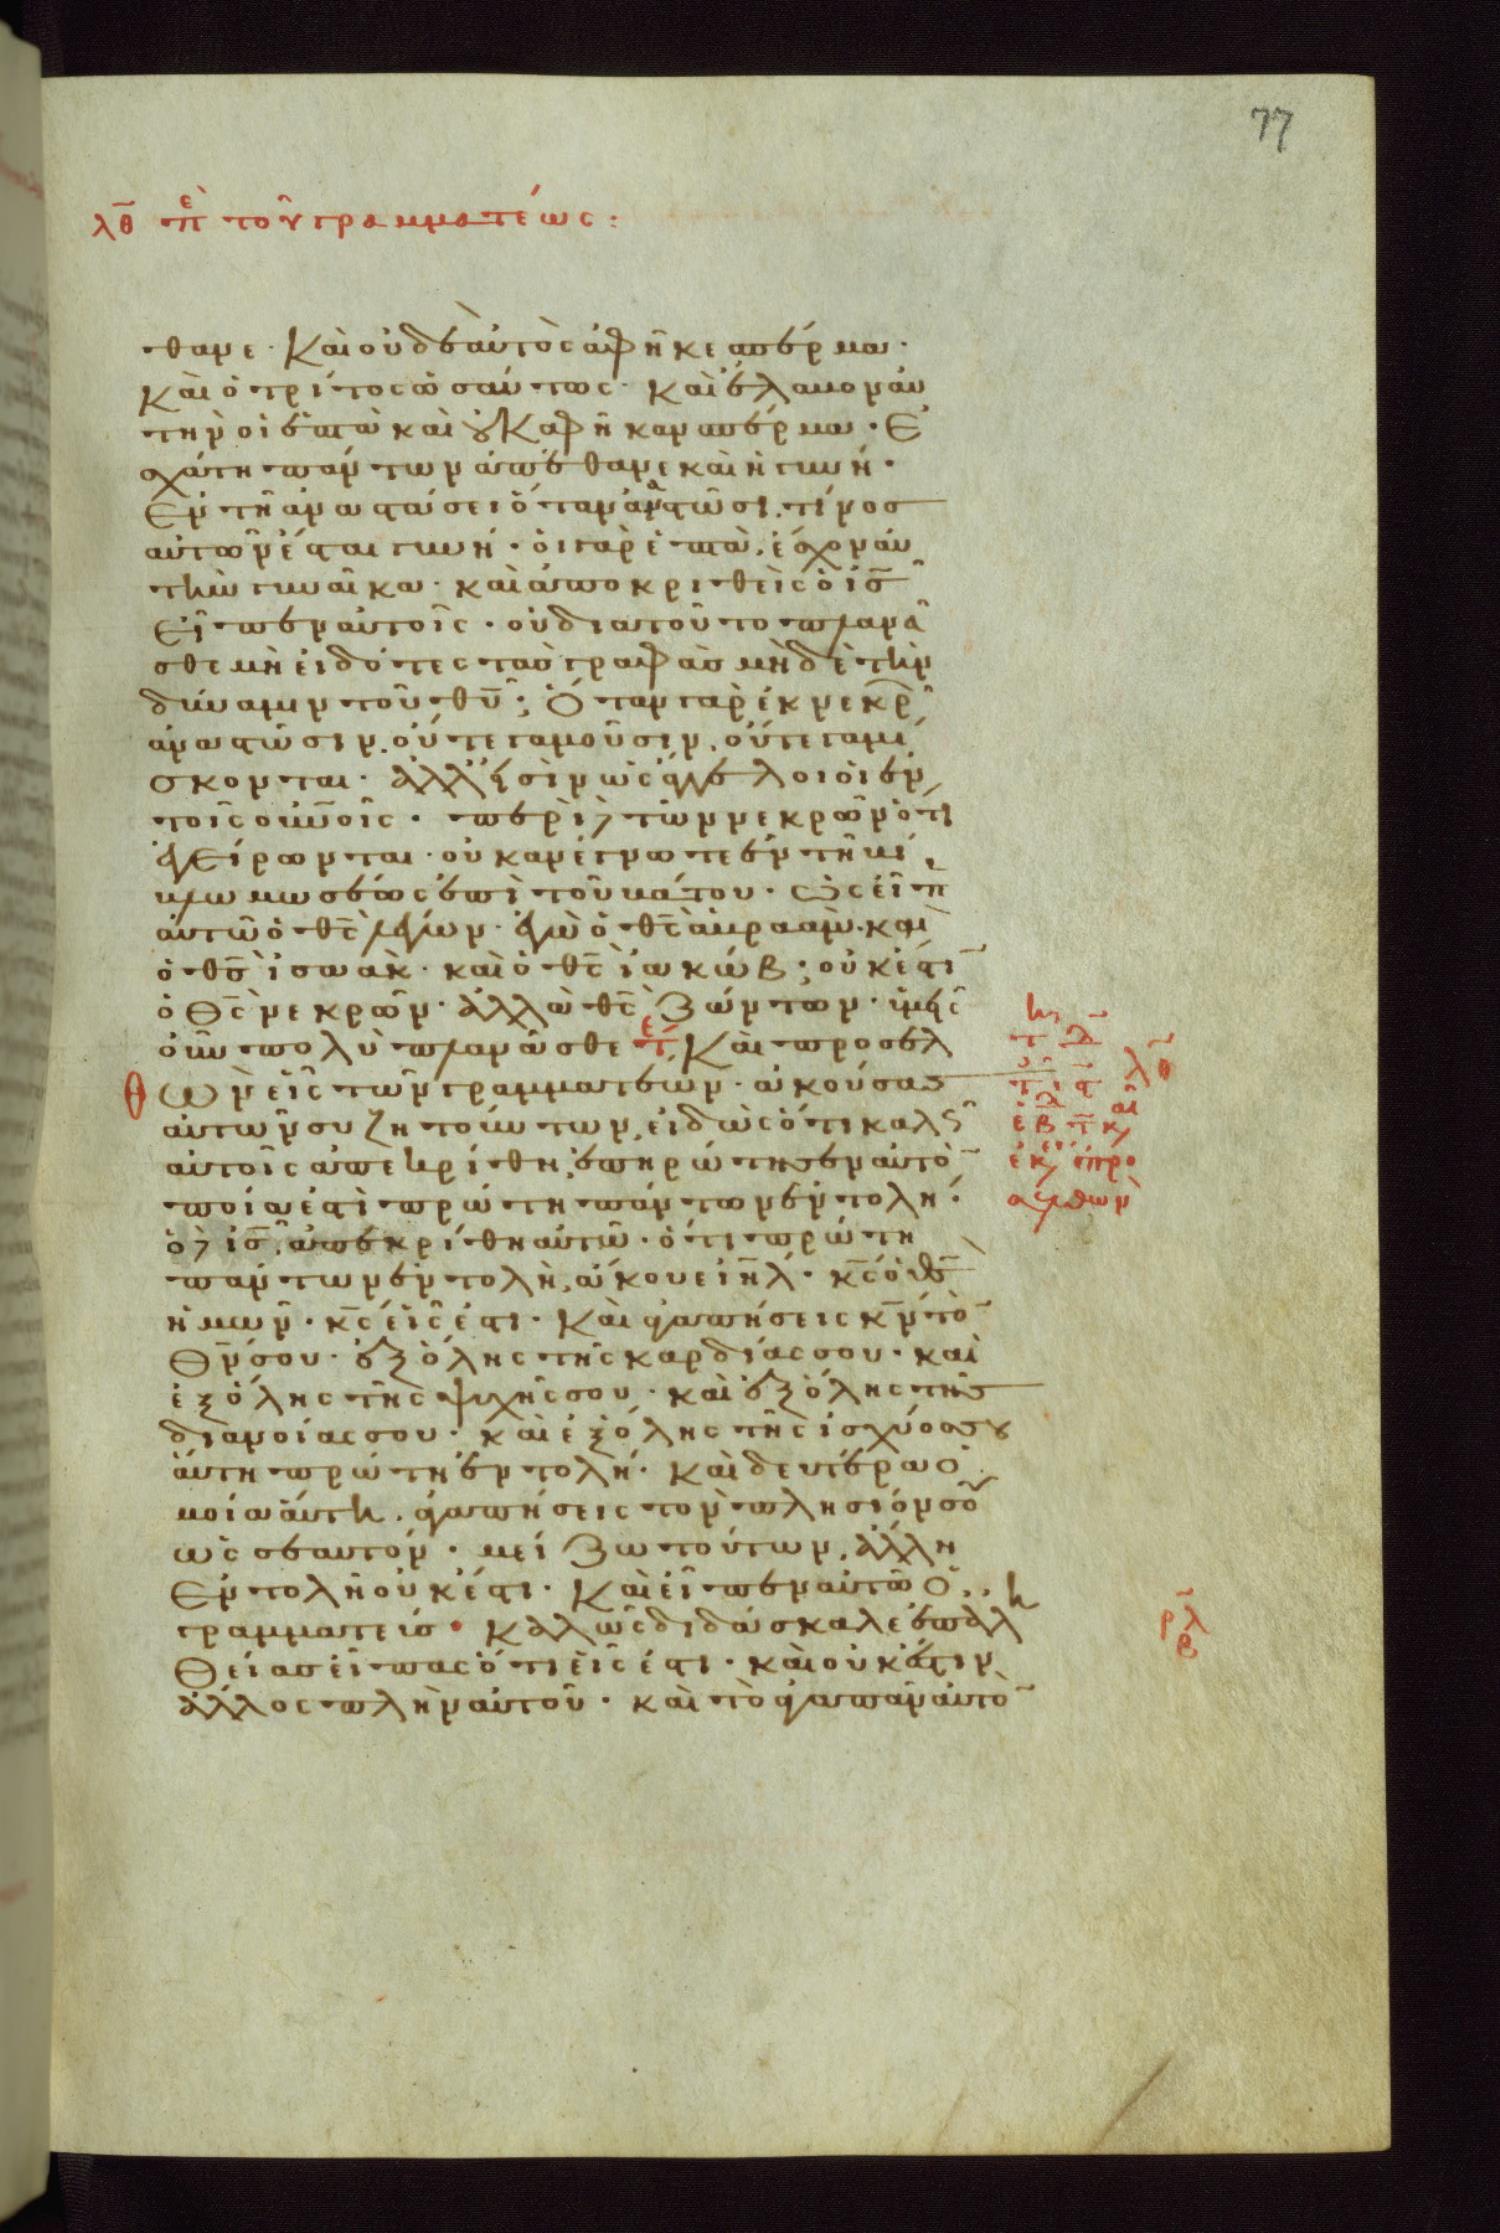 77
λθ πε τοῦ γραμματέως:
θανε· Καὶ οὐδὲ αὐτὸς ἀφῆκε σπέρμα·
καὶ ὁ τρίτος ὡσαύτως· καὶ ἔλαβον αὐ
τὴν οἱ ἑπτὰ καὶ οὐκ ἀφῆκαν σπέρμα· Ἐ
σχάτη πάντων ἀπέθανε καὶ ἡ γυνή·
Ἐν τῇ ἀναστάσει ὅταν ἀναστῶσι, τίνος
αὐτῶν ἔσται γυνή· οἱ γὰρ ἑπτὰ, ἔσχον αὐ
τὴν γυναῖκα· καὶ ἀποκριθεὶς ὁ ις
Εἶπεν αὐτοῖς· οὐ διατοῦτο πλανᾶ
σθε μὴ εἰδότες τὰς γραφὰς μὴδὲ τὴν
δύναμιν τοῦ θυ; Ὅταν γὰρ ἐκ νεκρῶ
ἀναστῶσιν, οὔτε γαμοῦσιν, οὔτε γαμί
σκονται· ἀλλ' εἰσὶν ὡς ἄγγελοι οἱ ἐν
τοῖς οὐνοῖς· περὶ δὲ τῶν νεκρῶν ὅτι
ἐγείρονται· οὐκ ἀνέγνωτε ἐν τῇ βί
βλω μωσέως ἐπὶ τοῦ βάτου· ὡς εἶπ
αὐτῶ ὁ θς λέγων· ἐγὼ ὁ θς ἀβραὰμ· καὶ
ὁ θς ἰσαὰκ· καὶ ὁ θς ἰακώβ; οὐκ ἔστι
ὁ Θς νεκρῶν· ἀλλὰ θς ζώντων· ὑμεῖς
οὖν πολὺ πλανᾶσθε τε Καὶ προσελ
Θ ὼν εἷς τῶν γραμματέων· ἀκούσας
αὐτῶν συζητούντων, εἰδὼς ὅτι καλῶς
αὐτοῖς ἀπεκρίθη, ἐπηρώτησεν αὐτὸ
ποία ἐστὶ πρώτη πάντων ἐντολή·
ὁ δὲ ις, ἀπεκρίθη αὐτῶ· ὅτι πρώτη
πάντων ἐντολὴ, ἄκουε ιηλ· κς ὁ θς
ἡμῶν· κς εἷς ἐστι· Καὶ ἀγαπήσεις κν τὸ
Θν σου· ἐξ ὅλης τῆς καρδίας σου· καὶ
ἐξ ὅλης τῆς ψυχῆς σου· καὶ ἐξ ὅλης τῆς
διανοίας σου· καὶ ἐξ ὅλης τῆς ἰσχύος σου
αὕτη πρώτη ἐντολή· Καὶ δευτέρα ὁ
μοία αὕτη. ἀγαπήσεις τὸν πλησιόν σου
ὡς σεαυτόν· μείζω τούτων, ἄλλη
Ἐντολὴ οὐκ ἔστι· Καὶ εἶπεν αὐτῶ ὁ
γραμματεύς· Καλῶς διδάσκαλε ἐπ ἀλη
Θείας εἶπας ὅτι εἷς ἐστι· καὶ οὐκ ἔστιν
ἄλλος πλὴν αὐτοῦ· καὶ τὸ ἀγαπᾶν αὐτὸ
λθ
ρλ